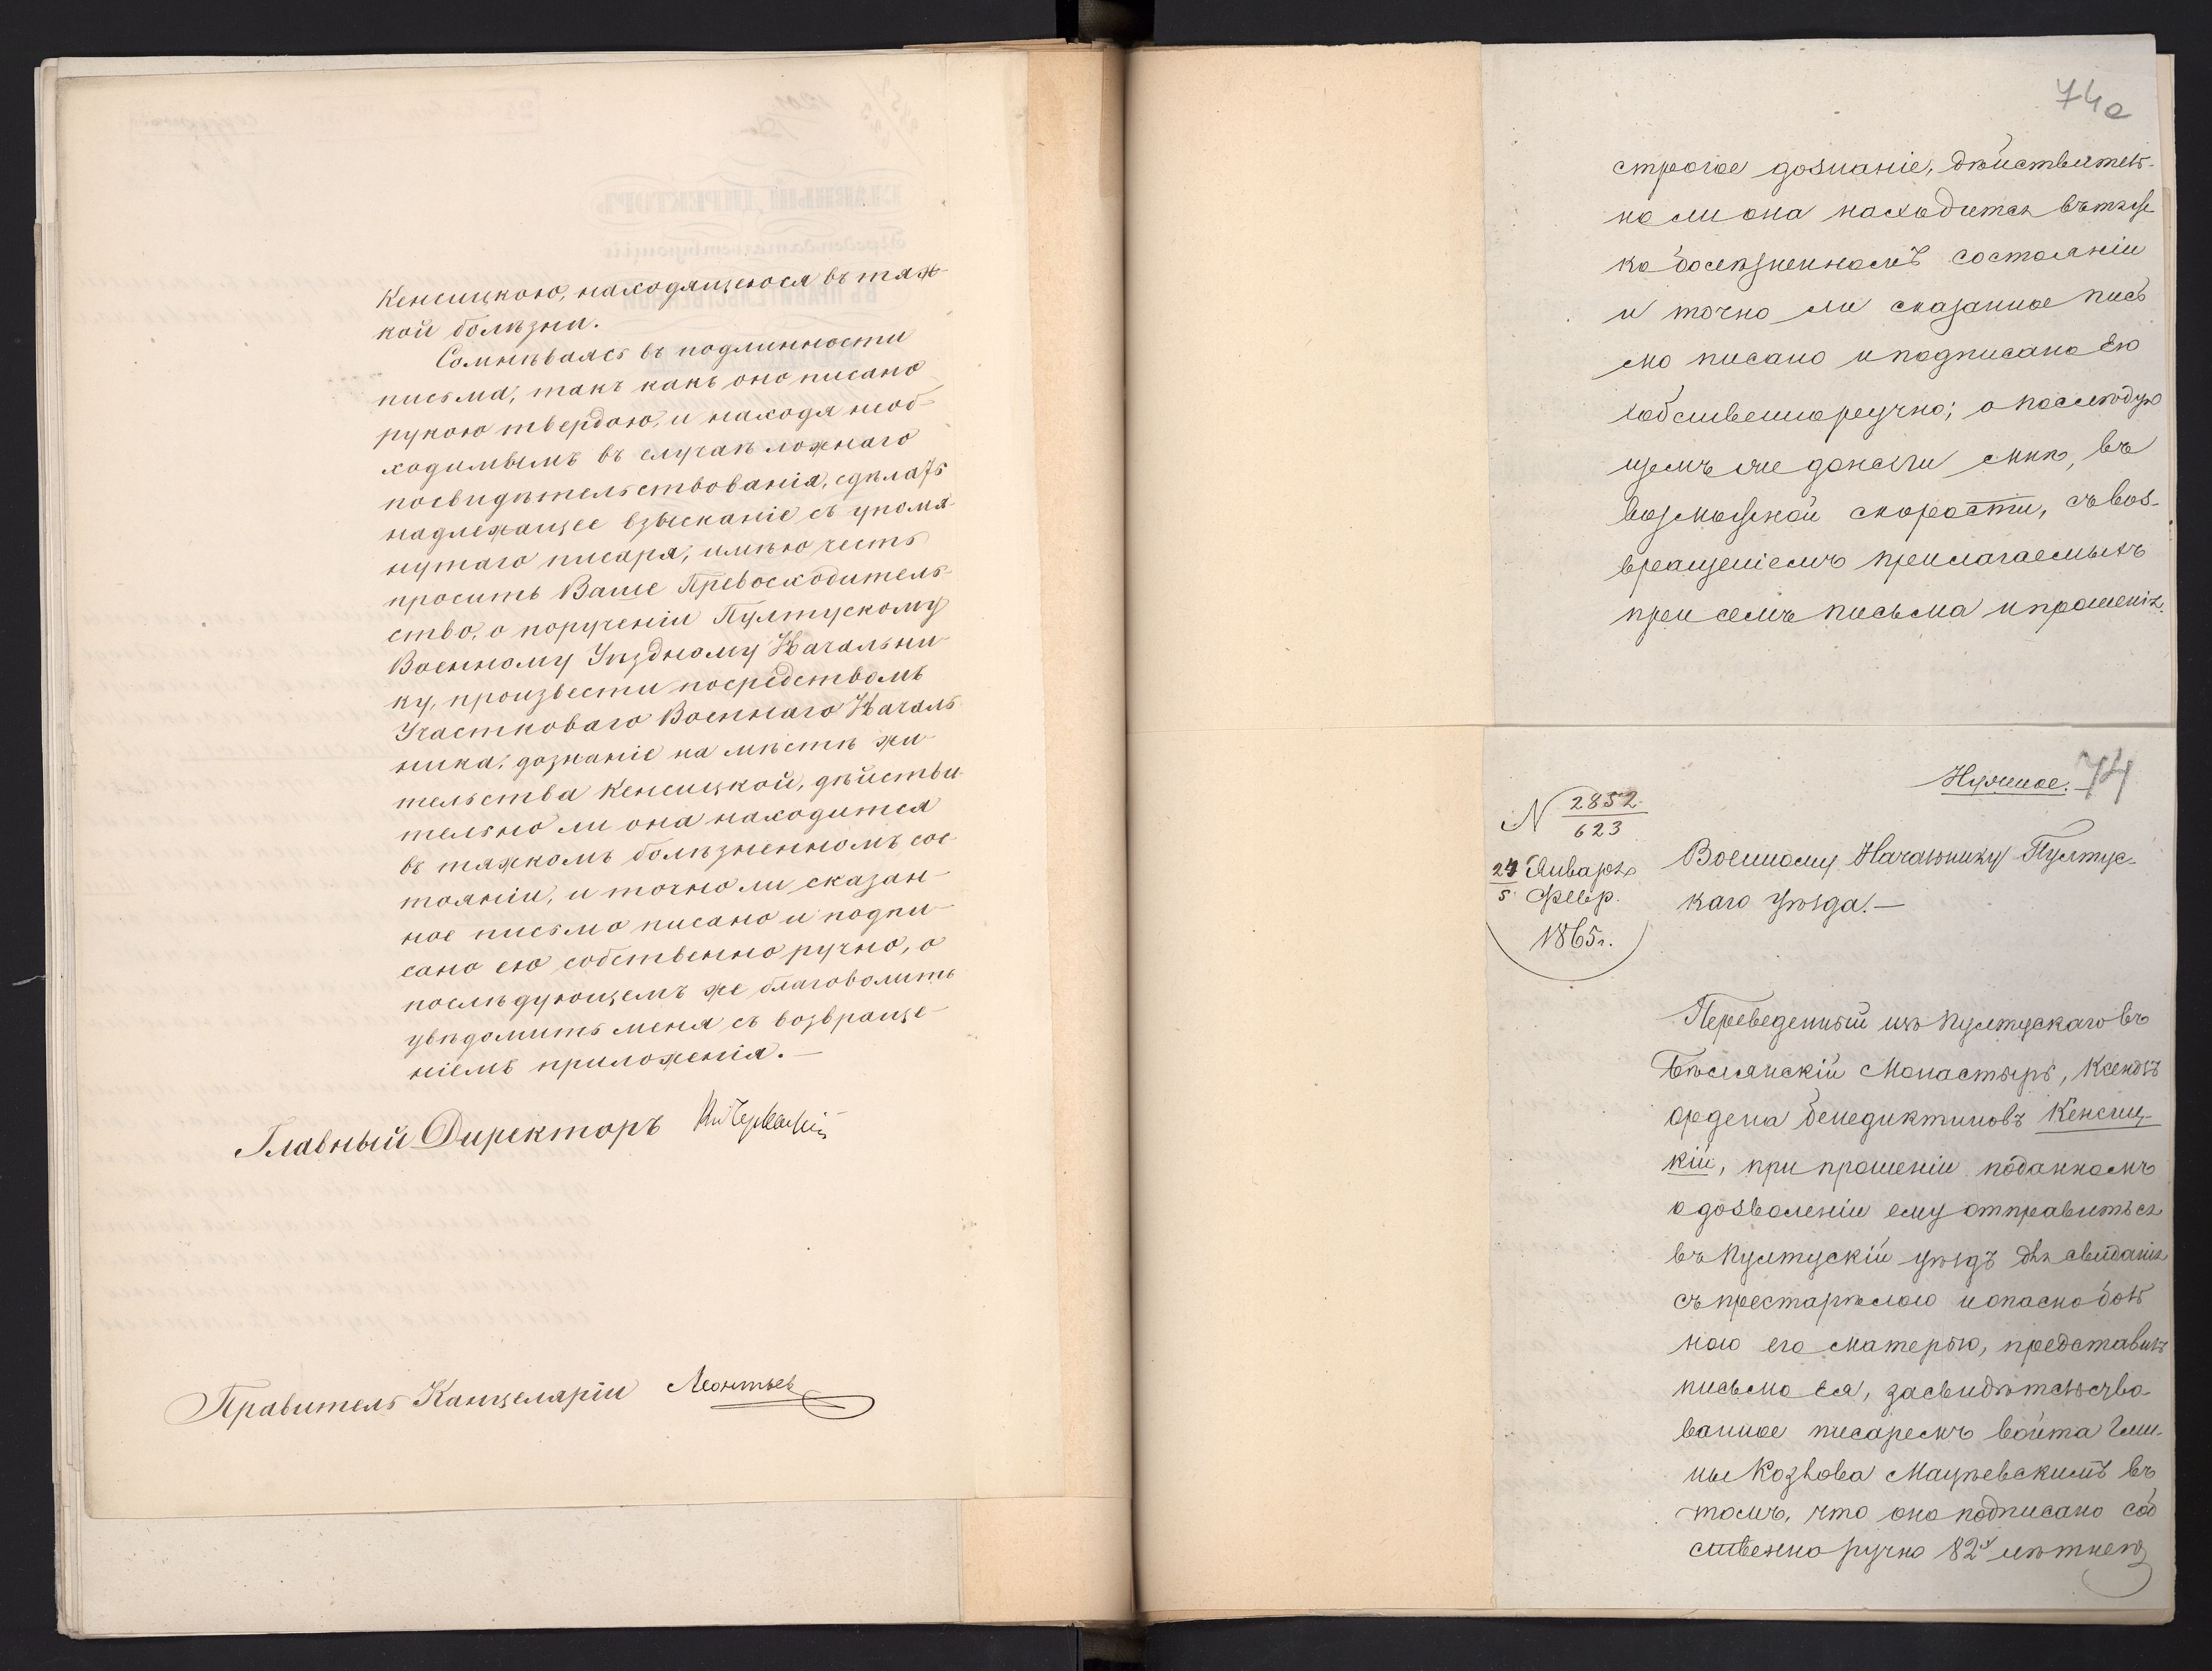 Кенсицкою, находящеюся въ тяж-
кой болѣзни.
Сомнѣваясь въ подлинности
письма, такъ какъ оно писано
рукою твердою, и находя необ-
ходимымъ въ случаѣ ложнаго
посвидѣтельствованія, сдѣлать
надлежащее взысканіе съ упомя-
нутаго писаря, имѣю честь
просить Ваше Превосходитель-
ство, о порученіи Пултускому
Военному Уѣздному Начальни-
ку, произвести посредствомъ
Участковаго Военнаго Началь-
ника, дознаніе на мѣстѣ жи-
тельства Кенсицкой, дѣйстви-
тельно ли она находится
въ тяжкомъ болѣзненномъ сос-
тояніи, и точно ли сказан-
ное письмо писано и подпи-
сано ею собственноручно, о
послѣдующемъ же благоволить
увѣдомить меня съ возвраще-
ніемъ приложенія.—
Главный Директоръ
Правитель Канцеляріи Леонтьев
74а
строгое дознаніе, дѣйствитель-
но ли она находится въ тяж-
ко болѣзненномъ состояніи
и точно ли сказанное пись
мо писано и подписано Ею
собственноручно; о послѣдую
щемъ же донести мнѣ, въ
возможной скорости, съ воз-
вращеніемъ прилагаемыхъ
при семъ письма и прошенія.
Нужное. 74
N 2852
623
24 Января
5 Февр.
1865г.
Военному Начальнику Пултус-
каго Уѣзда.—
Переведенный изъ Пултускаго въ
Бѣлянскій Монастырь, Ксендзъ
ордена бенедиктиновъ Кенсиц-
кій, при прошеніи поданномъ
о дозволеніи ему отправиться
въ Пултускій уѣздъ для свиданія
съ престарѣлою и опасно боль
ною его матерью, представилъ
письмо Ея, засвидѣтельство-
ванное писаремъ войта Гми-
ны Козлова Мацѣевскимъ въ
томъ, что оно подписано соб
ственноручно 82х лѣтнею